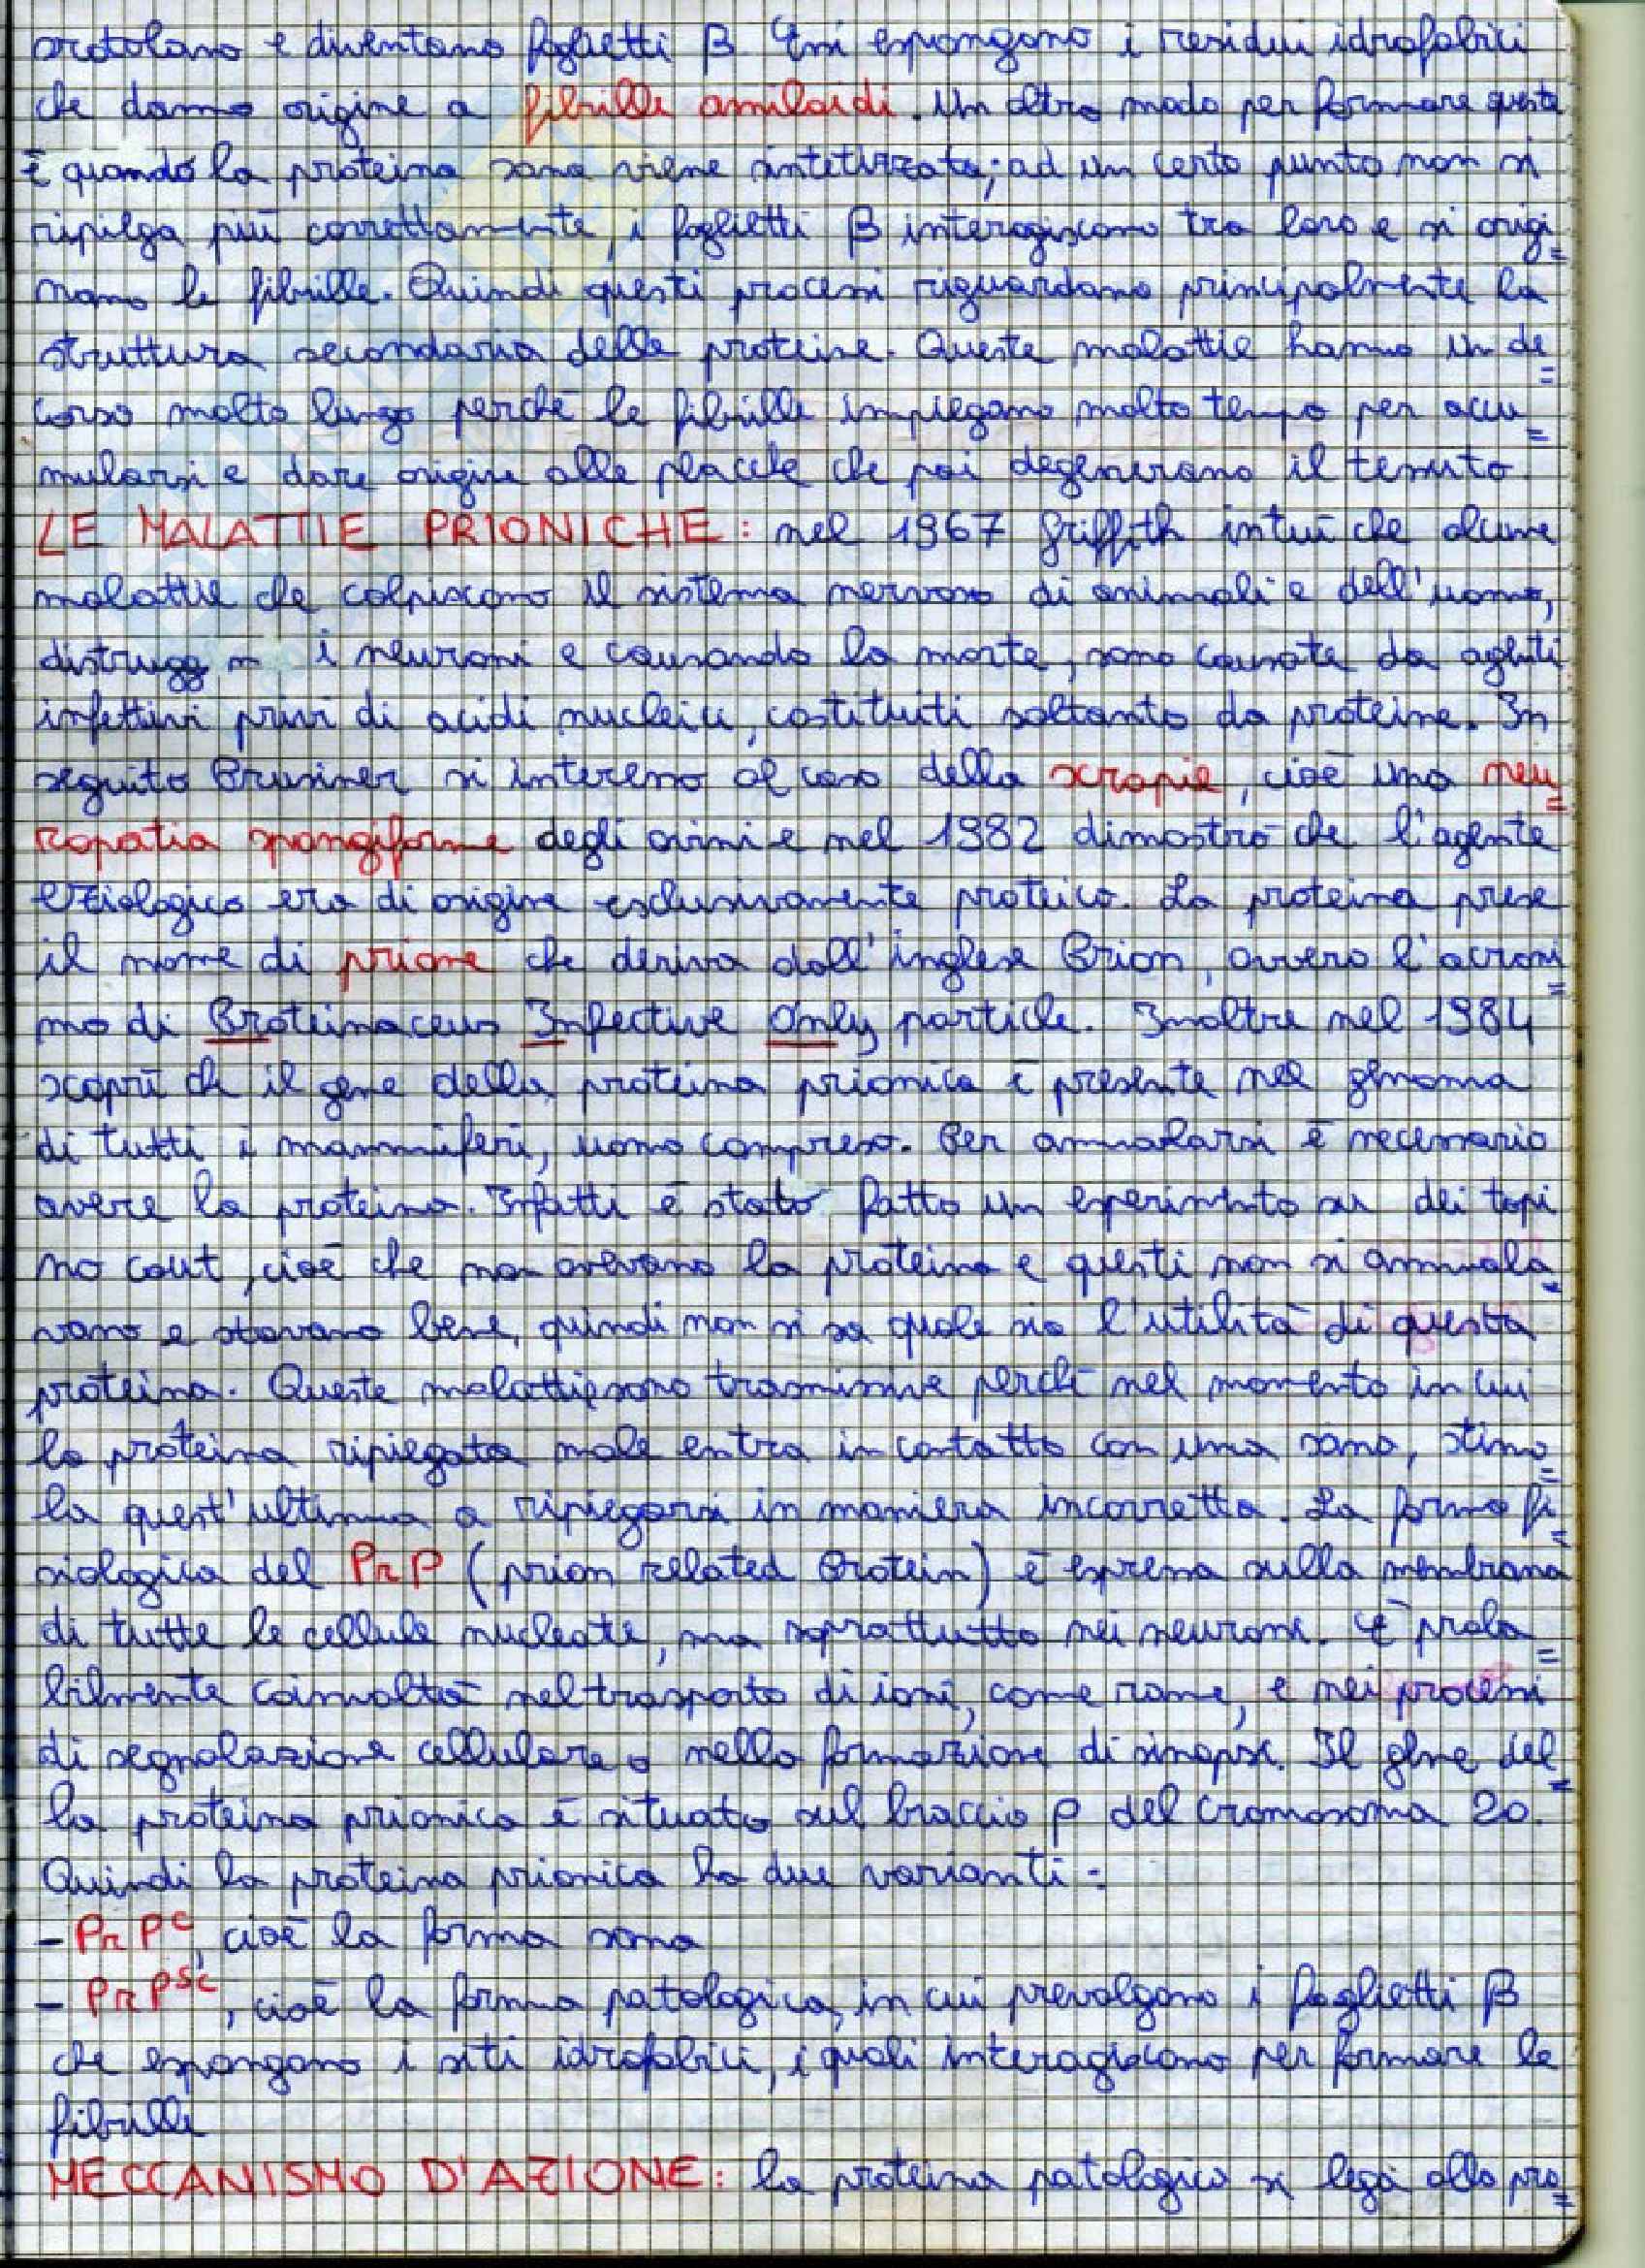 srotolano e diventano foglietti β. Essi espongono i residui idrofobici
che danno origine a fibrille amiloidi. Un altro modo per formare queste
è quando la proteina sana viene sintetizzata; ad un certo punto non si
ripiega più correttamente, i foglietti β interagiscono tra loro e si origi=
nano le fibrille. Quindi questi processi riguardano principalmente la
struttura secondaria delle proteine. Queste malattie hanno un de=
corso molto lungo perché le fibrille impiegano molto tempo per accu=
mularsi e dare origine alle placche che poi degenerano il tessuto.
LE MALATTIE PRIONICHE: nel 1967 Griffith intuì che alcune
malattie che colpiscono il sistema nervoso di animali e dell'uomo,
i neuroni e causando la morte, sono causate da agenti
infettivi privi di acidi nucleici, costituiti soltanto da proteine. In
seguito Prusiner si interessò al caso della scrapie, cioè una neu=
ropatia spongiforme degli ovini e nel 1982 dimostrò che l'agente
eziologico era di origine esclusivamente proteico. La proteina prese
il nome di prione che deriva dall'inglese Prion, ovvero l'acroni=
mo di Proteinaceus Infective Only particle. Inoltre nel 1984
scoprì che il gene della proteina prionica è presente nel genoma
di tutti i mammiferi, uomo compreso. Per ammalarsi è necessario
avere la proteina. Infatti è stato fatto un esperimento su dei topi
no cout, cioè che non avevano la proteina e questi non si ammala=
vano e stavano bene, quindi non si sa quale sia l'utilità di questa
proteina. Queste malattie sono trasmissive perché nel momento in cui
la proteina ripiegata male entra in contatto con una sana, stimo=
la quest'ultima a ripiegarsi in maniera incorretta. La forma fi=
siologica del PrP (prion related Protein) è espressa sulla membrana
di tutte le cellule nucleate, ma soprattutto nei neuroni. È proba=
bilmente coinvolta nel trasporto di ioni, come rame, e nei processi
di segnalazione cellulare o nella formazione di sinapsi. Il gene del=
la proteina prionica è situato sul braccio p del cromosoma 20.
Quindi la proteina prionica ha due varianti:
- PrPᶜ, cioè la forma sana
- PrPˢᶜ, cioè la forma patologica, in cui prevalgono i foglietti β
che espongono i siti idrofobici, i quali interagiscono per formare le
fibrille
MECCANISMO D'AZIONE: la proteina patologica si lega alla pro=